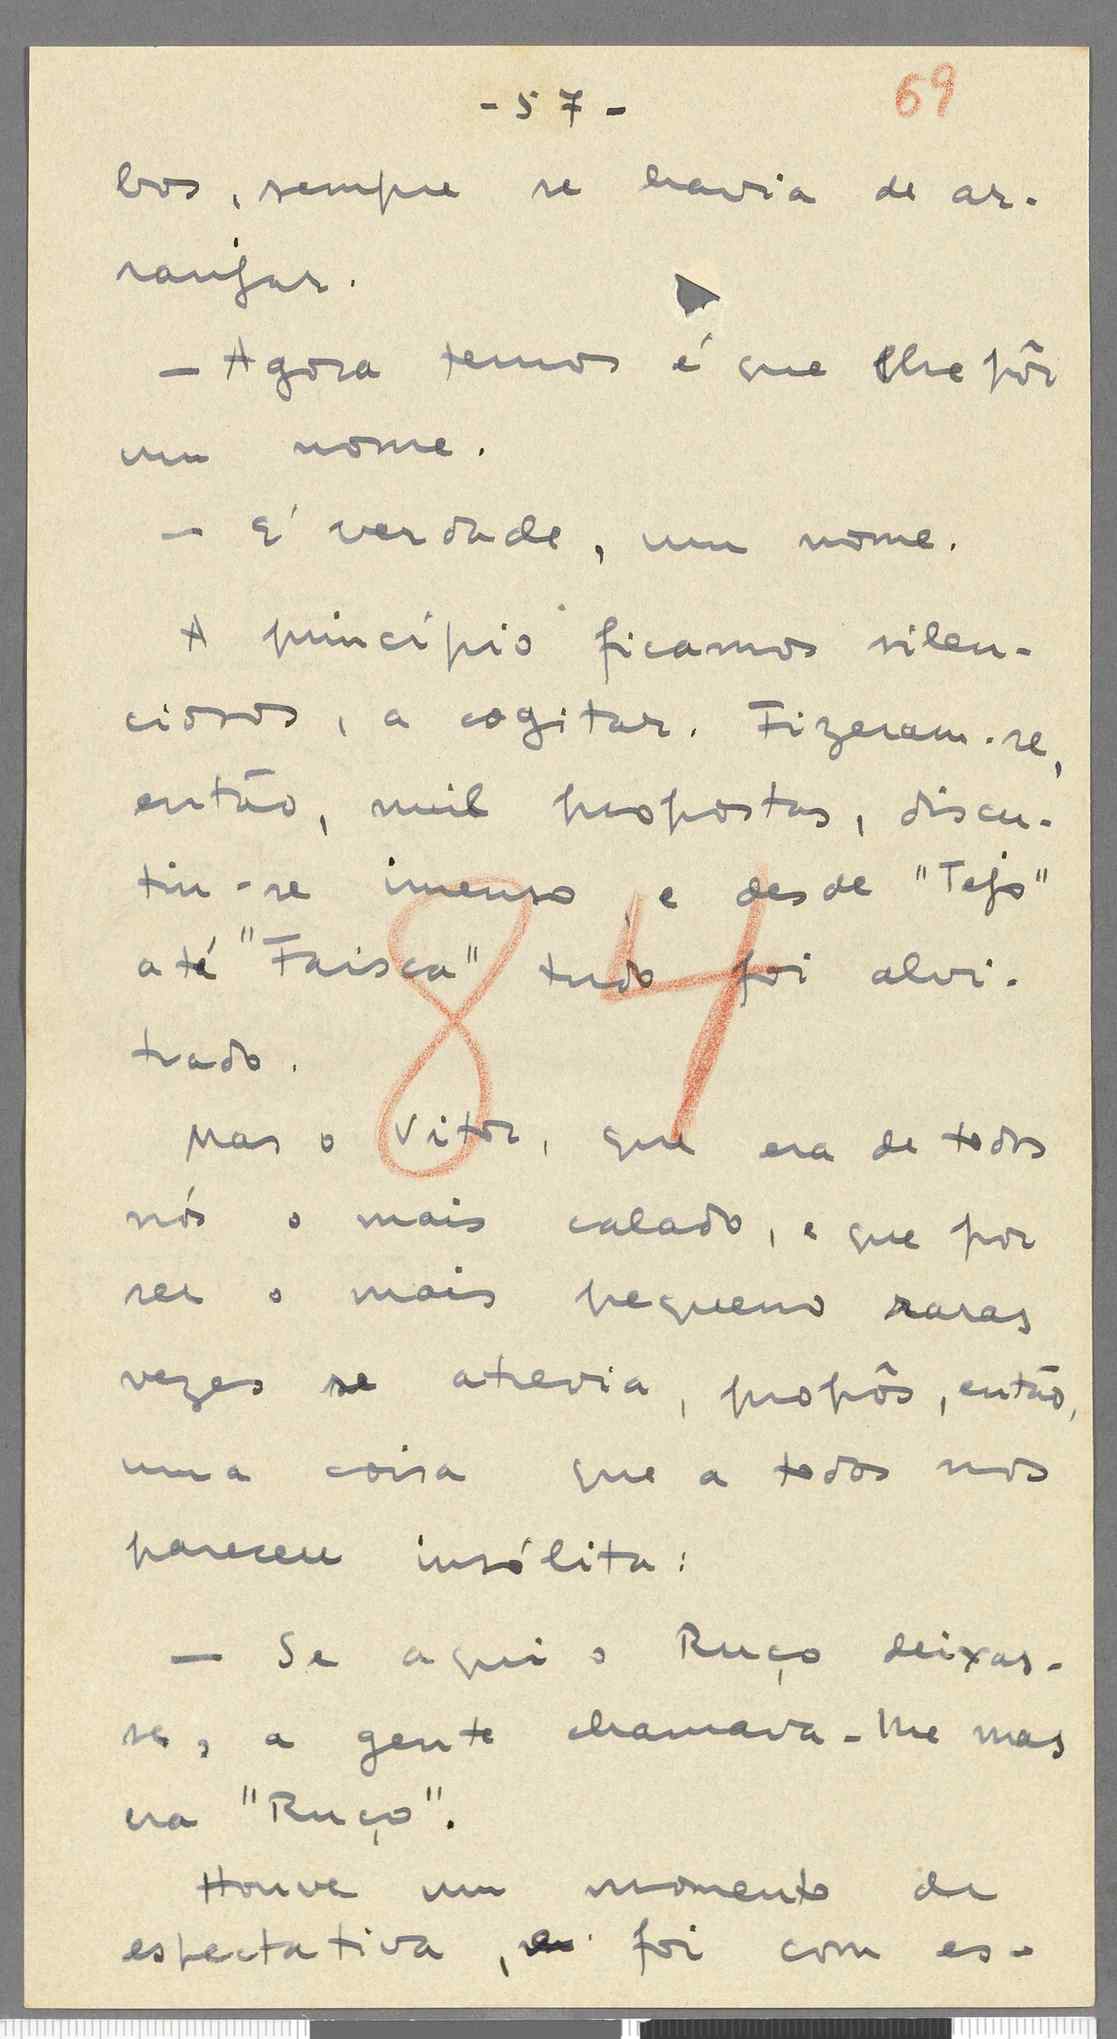 - 57 -
69
bos, sempre se havia de ar-
ranjar.
— Agora temos é que lhe pôr
um nome.
— E' verdade, um nome.
A princípio ficamos silen-
ciosos, a cogitar. Fizeram-se,
então, mil propostas, discu-
tiu-se imenso, e desde "Tejo"
até "Faisca" tudo foi alvi-
trado.
84
Mas o Vitor, que era de todos
nós o mais calado, e que por
ser o mais pequeno raras
vezes se atrevia, propôs, então,
uma coisa que a todos nos
pareceu insólita:
— Se aqui o Ruço deixas-
se, a gente chamava-lhe mas
era "Ruço".
Houve um momento de
espectativa, foi com es-